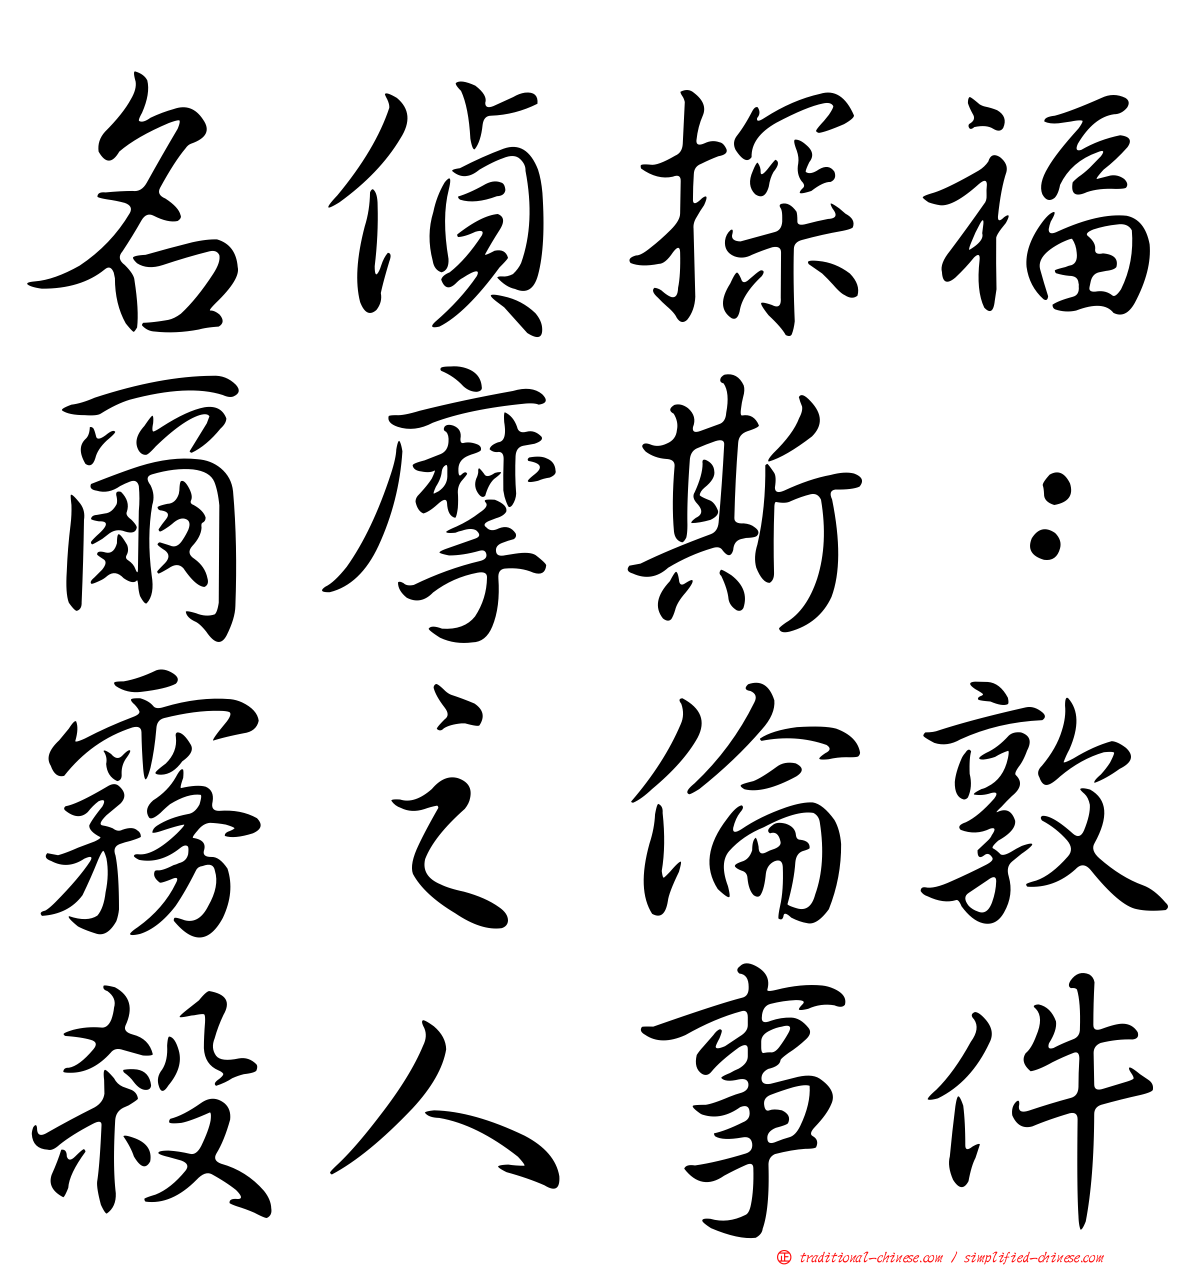 名偵探福
爾摩斯：
霧之倫敦
殺人事件
㊣ traditional-chinese.com / simplified-chinese.com